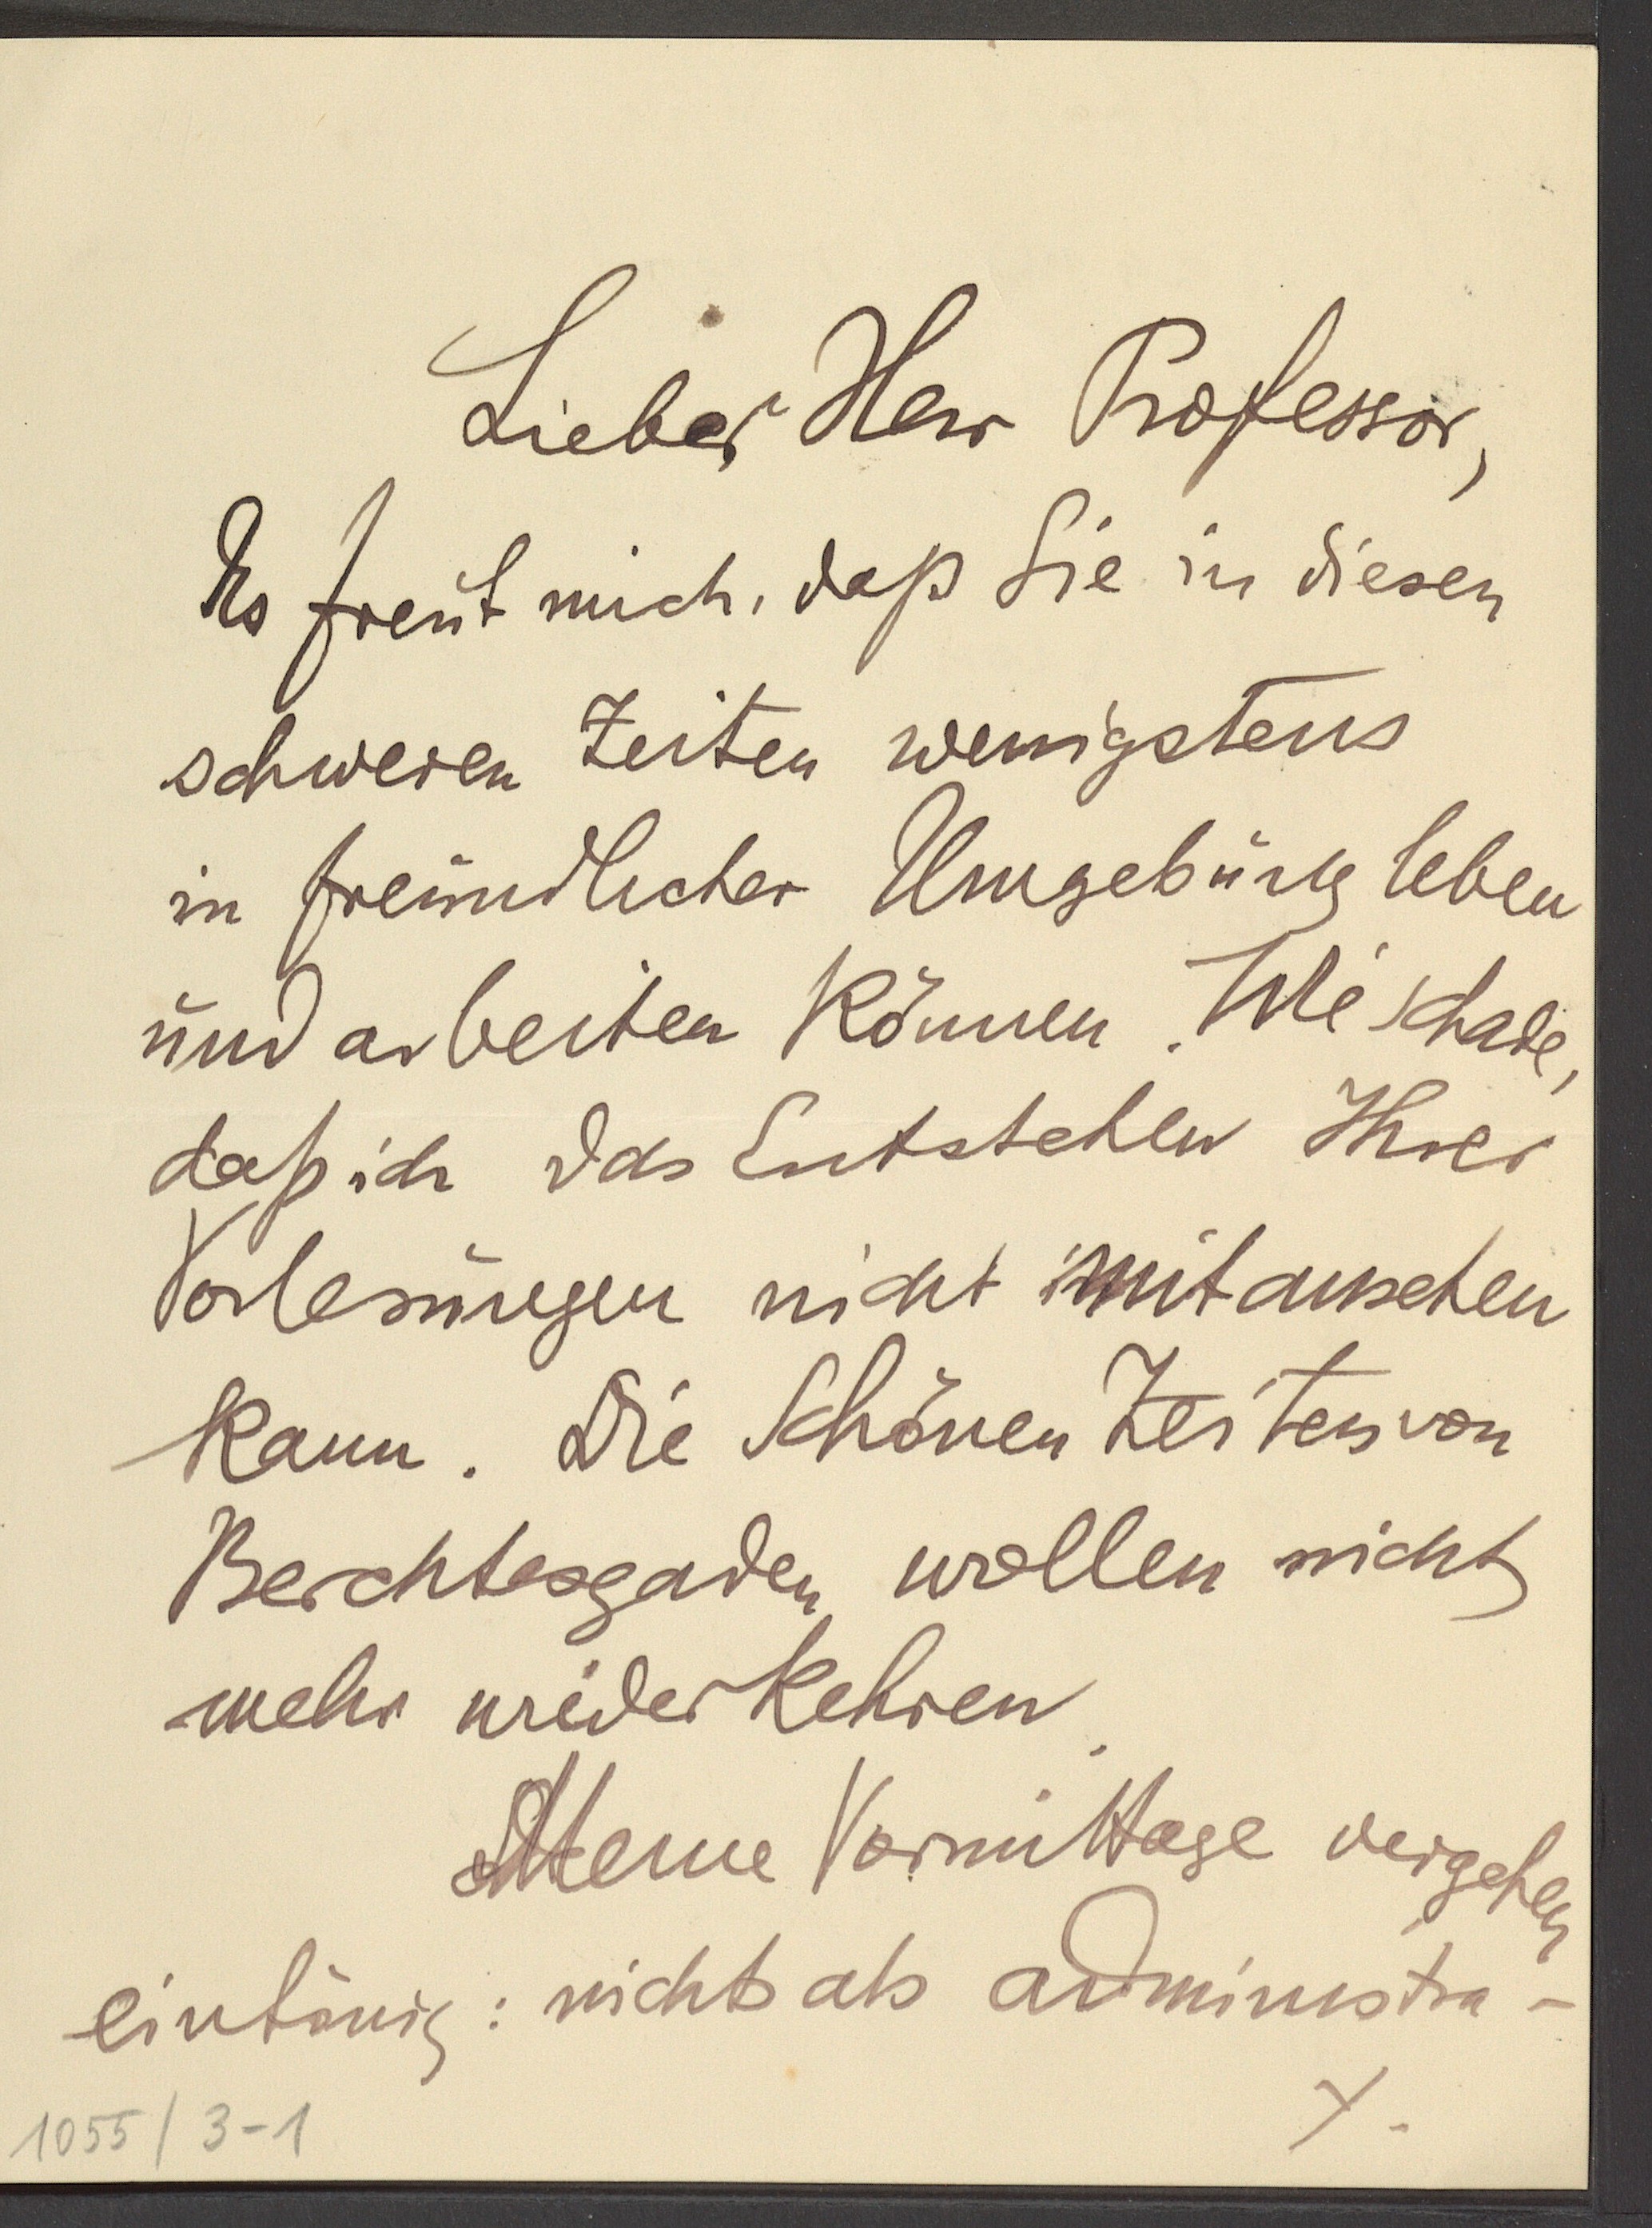 Lieber Herr Professor,
Es freut mich, daß Sie in diesen
schweren Zeiten wenigstens
in freundlicher Umgebung leben
und arbeiten können. Wie schade,
daß ich das Entstehen Ihrer
Vorlesungen nicht mitansehen
kann. Die schönen Zeiten von
Berchtesgaden wollen nicht
mehr wiederkehren.
Meine Vormittage vergehen
eintönig: nichts als administra-
1055/3-1